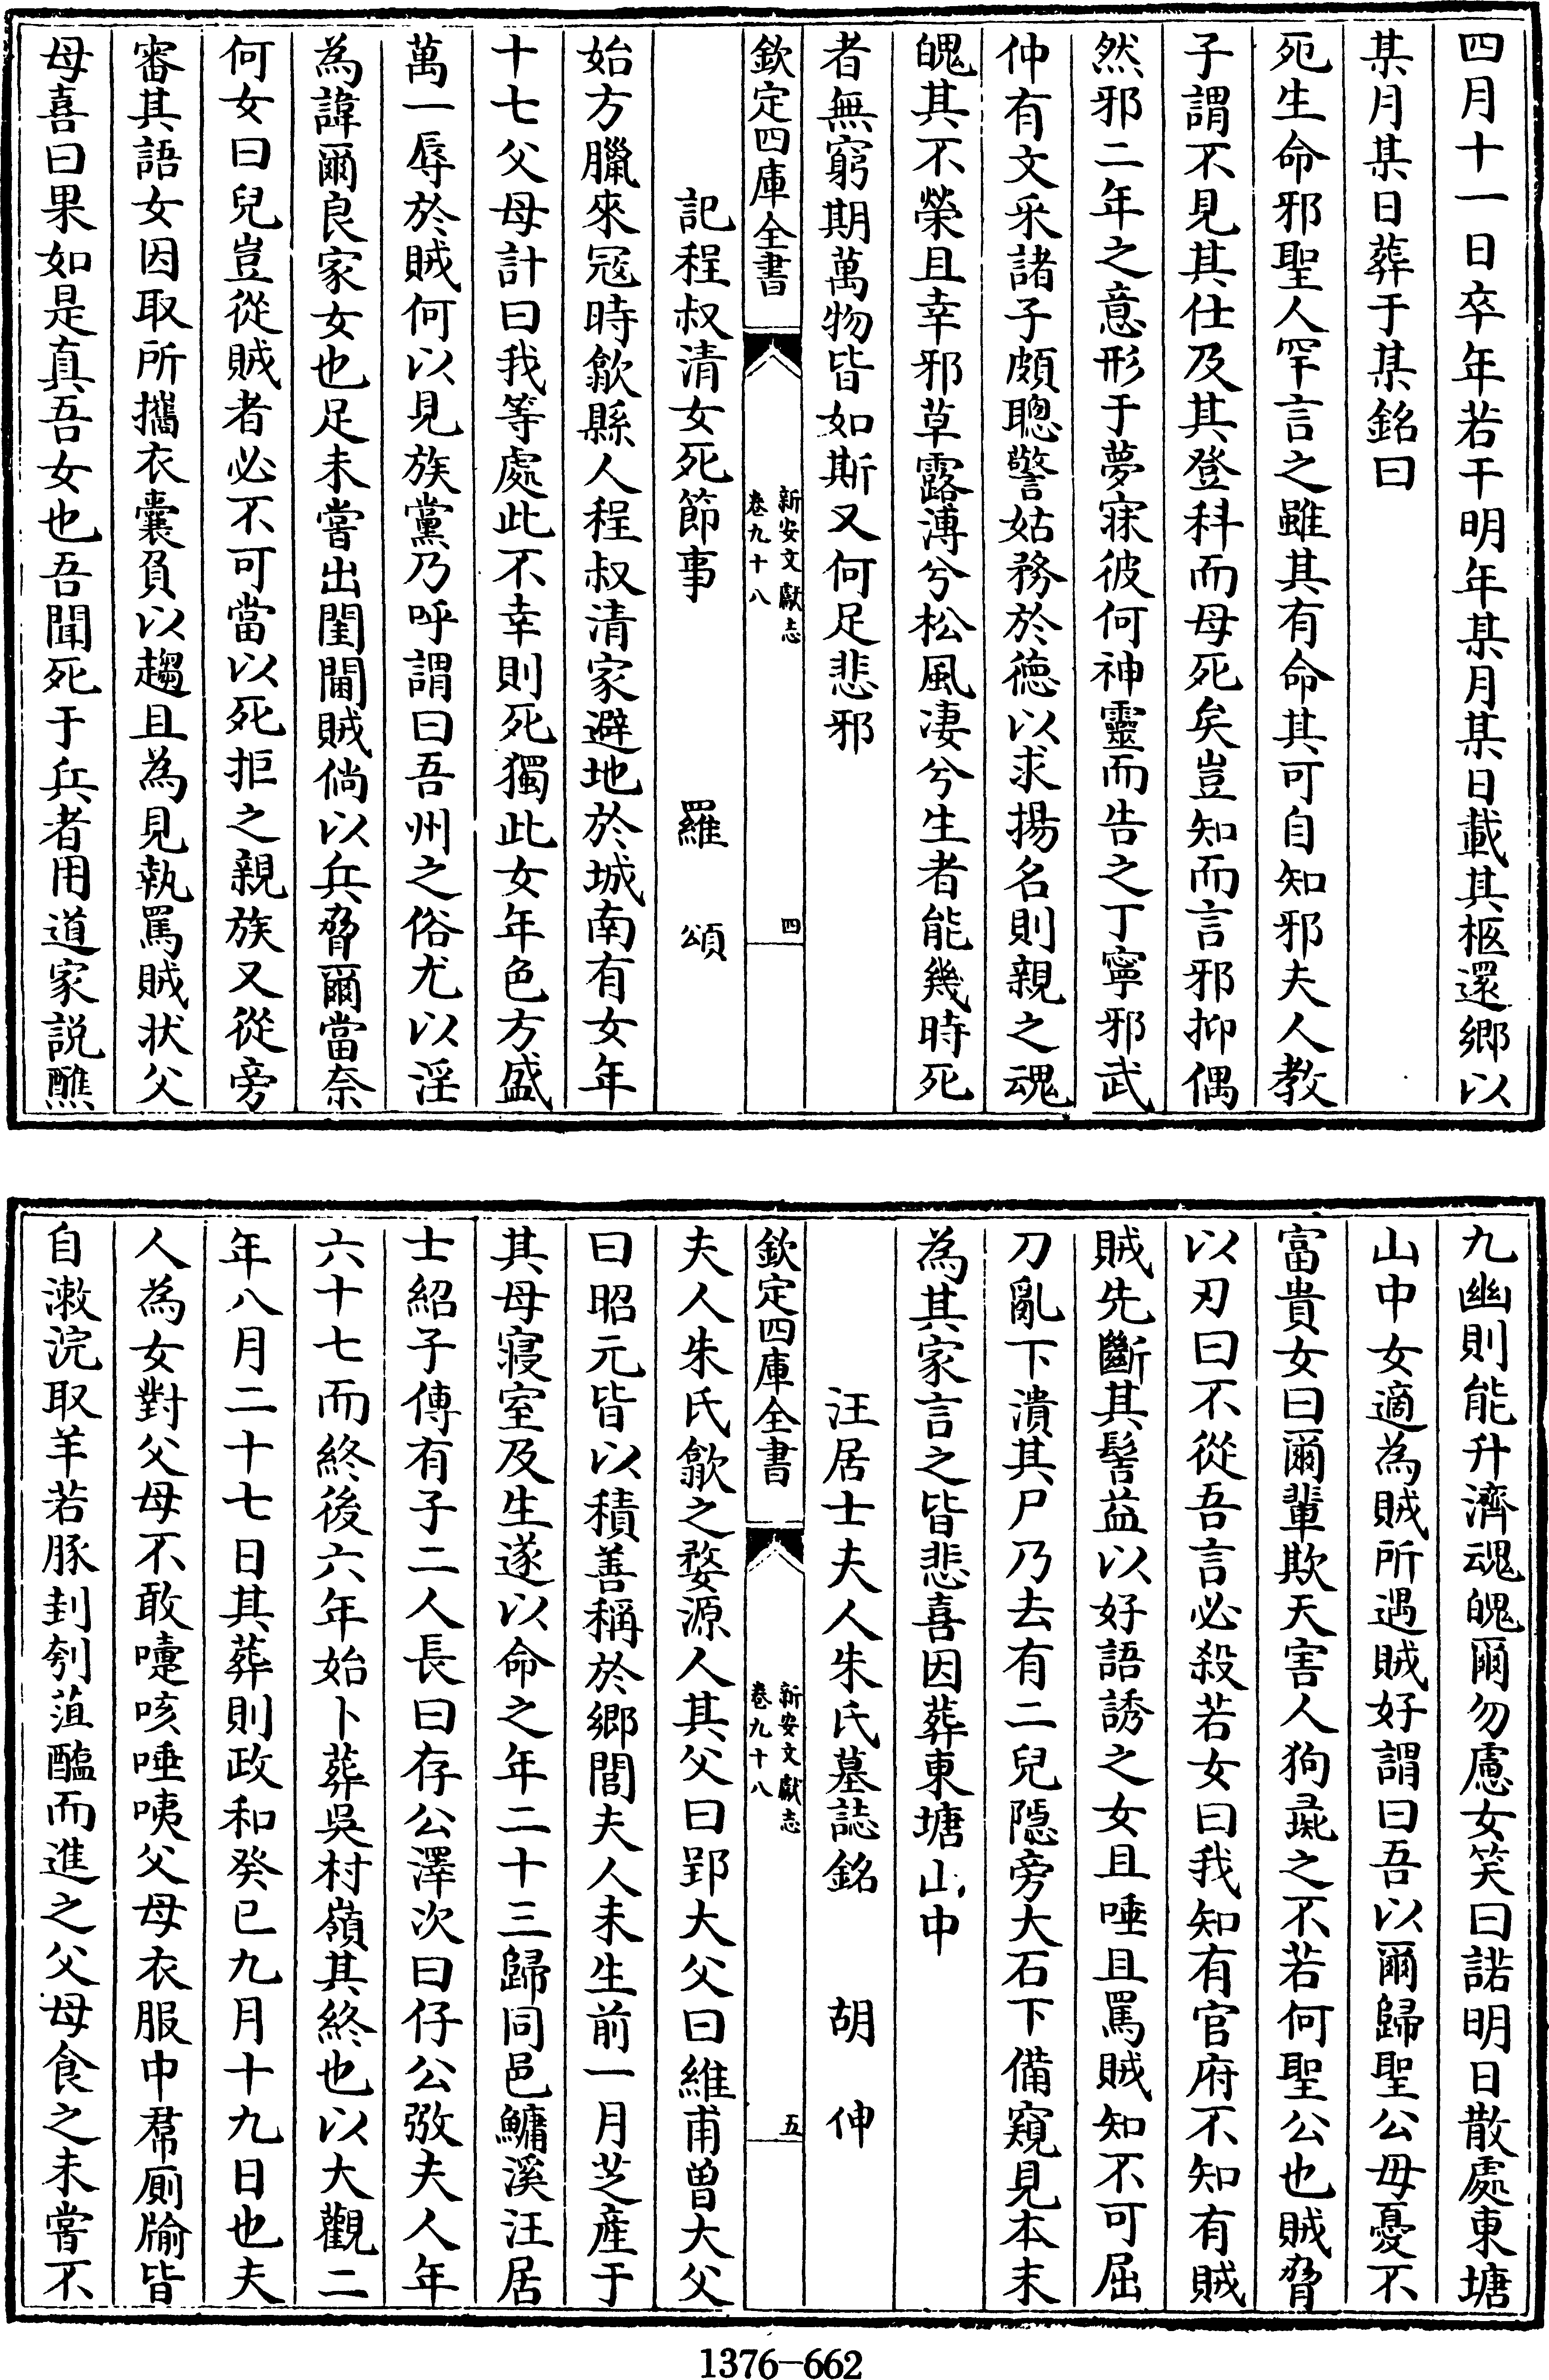 四月十一日卒年若干明年某月某日載其柩還鄉以
某月某日葬于某銘曰
死生命邪聖人罕言之雖其有命其可自知邪夫人教
子謂不見其仕及其登科而母死矣豈知而言邪抑偶
然邪二年之意形于夢寐彼何神靈而告之丁寧邪武
仲有文采諸子頗聰警姑務於德以求揚名則親之魂
魄其不榮且幸邪草露溥兮松風凄兮生者能幾時死
者無窮期萬物皆如斯又何足悲邪
欽定四庫全書
新安文獻志
卷九十八
四
記程叔清女死節事 羅頌
始方臘來寇時歙縣人程叔清家避地於城南有女年
十七父母計曰我等處此不幸則死獨此女年色方盛
萬一辱於賊何以見族黨乃呼謂曰吾州之俗尤以淫
為諱爾良家女也足未嘗出閨閫賊倘以兵脅爾當奈
何女曰兒豈從賊者必不可當以死拒之親族又從旁
審其語女因取所攜衣囊負以趨且為見執罵賊狀父
母喜曰果如是真吾女也吾聞死于兵者用道家説醮
九幽則能升濟魂魄爾勿慮女笑曰諾明日散處東塘
山中女適為賊所遇賊好謂曰吾以爾歸聖公毋憂不
富貴女曰爾輩欺天害人狗彘之不若何聖公也賊脅
以刃曰不從吾言必殺若女曰我知有官府不知有賊
賊先斷其髻益以好語誘之女且唾且罵賊知不可屈
刀亂下潰其尸乃去有二兒隱旁大石下備窺見本末
為其家言之皆悲喜因葬東塘山中
汪居士夫人朱氏墓誌銘 胡伸
欽定四庫全書
新安文獻志
卷九十八
五
夫人朱氏歙之婺源人其父曰郢大父曰維甫曽大父
曰昭元皆以積善稱於鄉閭夫人未生前一月芝産于
其母寢室及生遂以命之年二十三歸同邑鱅溪汪居
士紹子傳有子二人長曰存公澤次曰仔公弢夫人年
六十七而終後六年始卜葬吳村嶺其終也以大觀二
年八月二十七日其葬則政和癸已九月十九日也夫
人為女對父母不敢嚏咳唾咦父母衣服中帬厠牏皆
自潄浣取羊若豚刲刳菹醢而進之父母食之未嘗不
1376-662